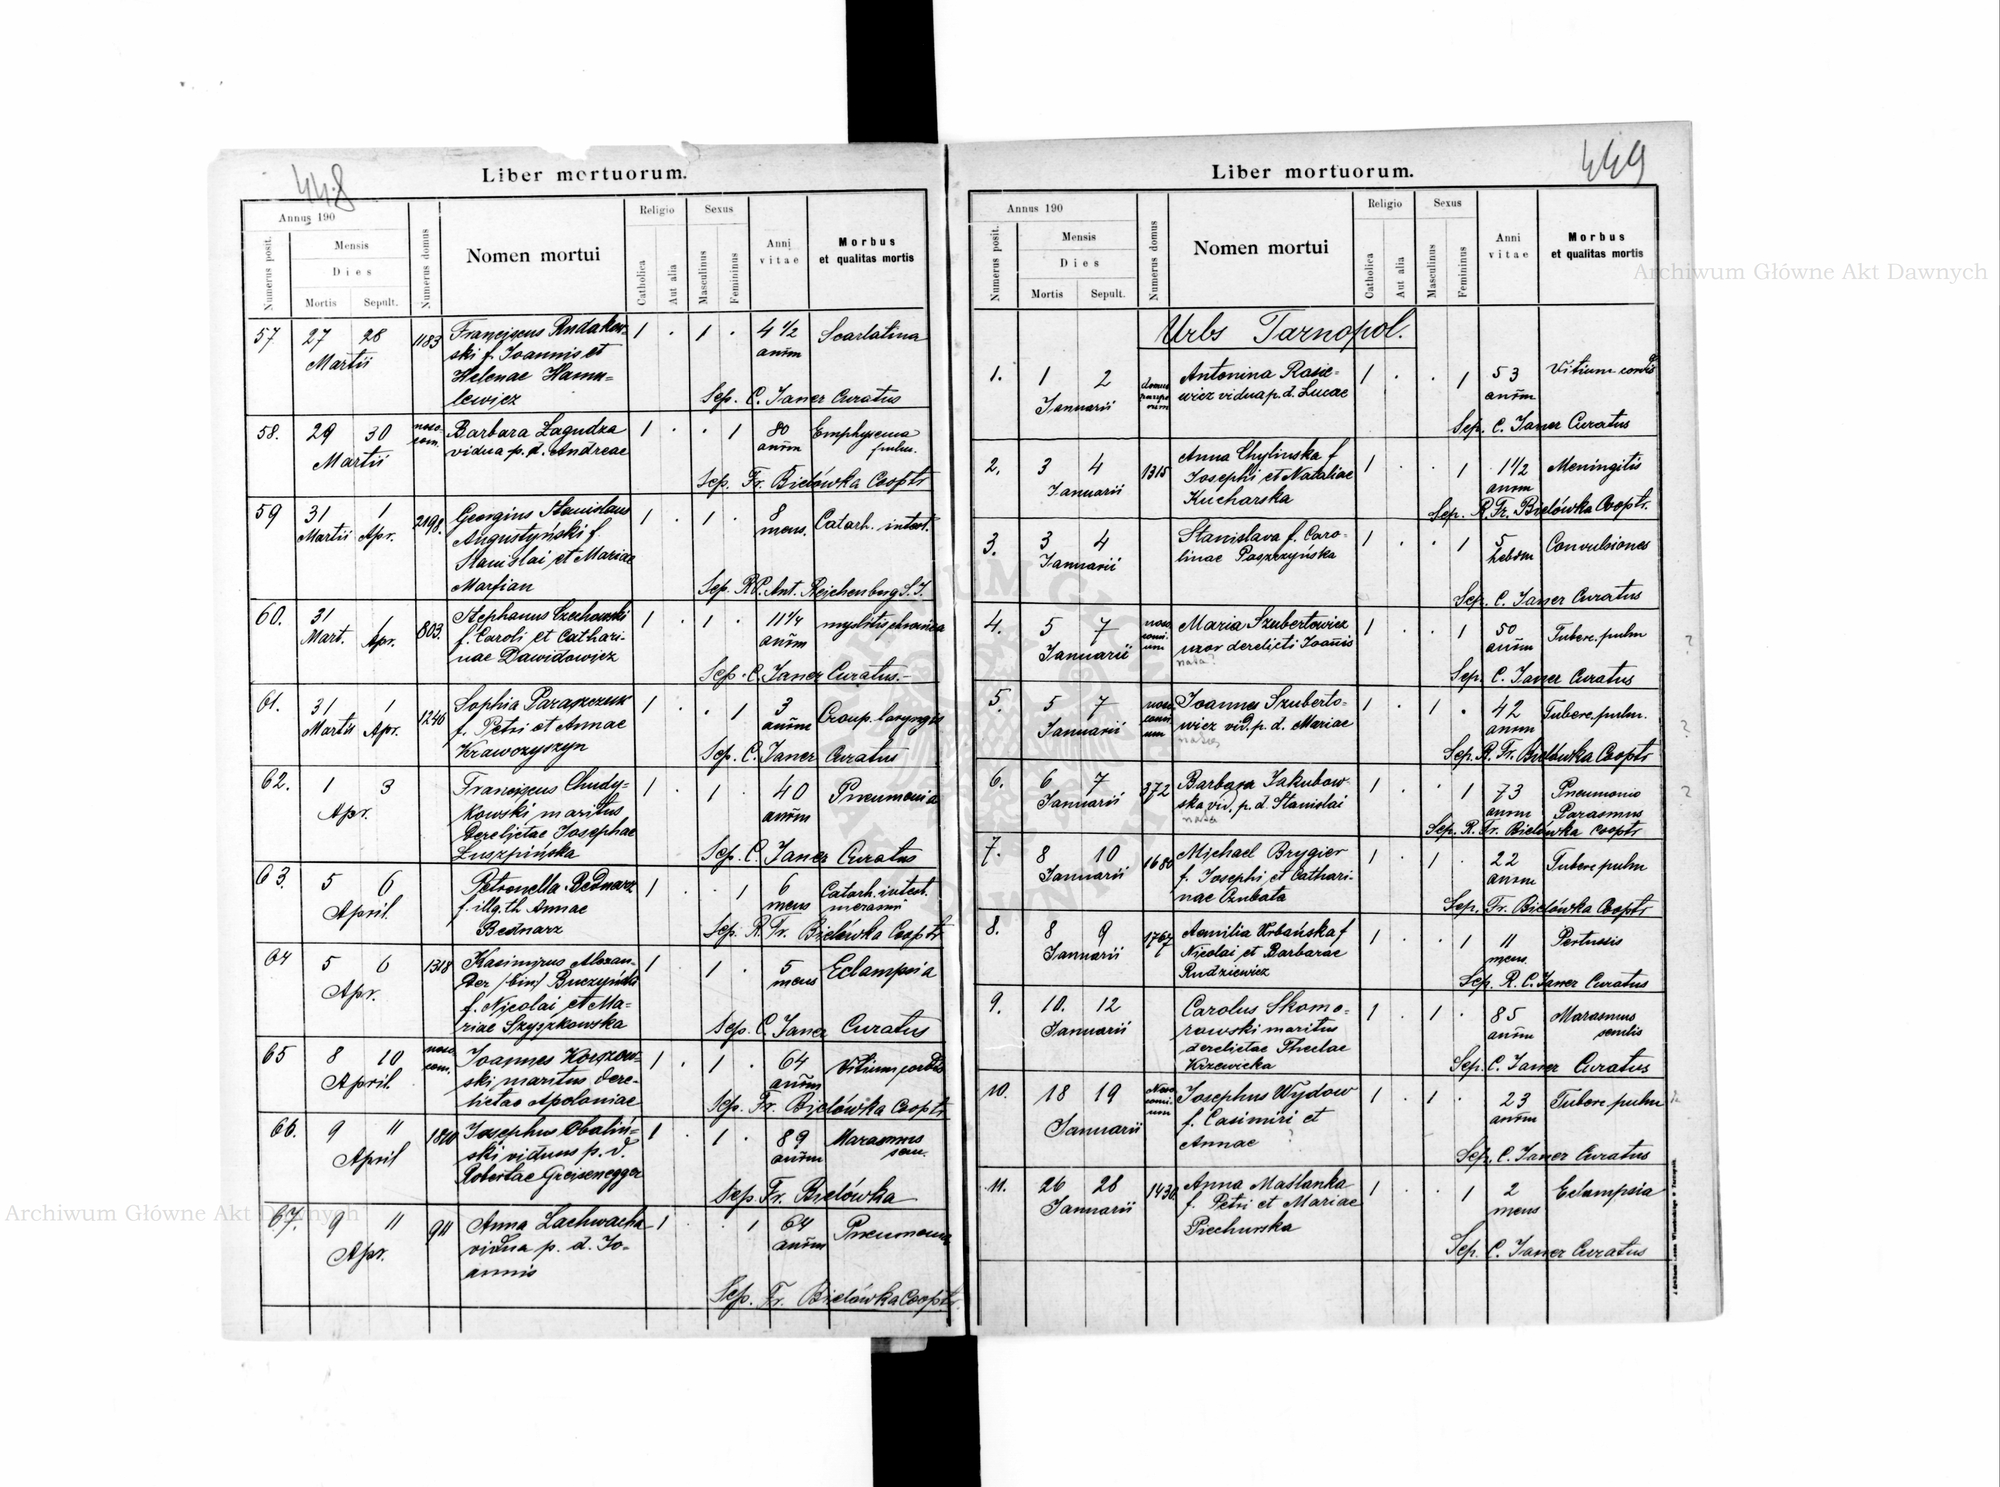 448
Liber mortuorum.
Annus 190
Numerus posit.
Mensis
Dies
Mortis Sepult.
Numerus domus
Nomen mortui
Religio
Catholica
Aut alia
Sexus
Masculinus
Femininus
Anni vitae
Morbus
et qualitas mortis
57 27 28 1183 Franciscus Rudakow- 1 . 1 . 4 1/2 Scarlatina
Martii ski f. Joannis et anūm
Helenae Hamu-
lewicz Sep. C. Janer Curatus
58. 29 30 noso- Barbara Zagudza 1 . . 1 80 Emphysema
Martii com. vidua p. d. Andreae anūm pulm.
Sep. Fr. Bielówka Cooptr
59 31 1 2198. Georgius Stanislaus 1 . 1 . 8 Catarh. intest.
Martii Apr. Augustyński f. mens.
Stanislai et Mariae
Marfian Sep. RP. Ant. Reichenberg S. J.
60. 31 1 803. Stephanus Czechowski 1 . 1 . 11 1/4 myelitis chronica
Mart. Apr. f. Caroli et Cathari- anūm
nae Dawidowicz Sep. C. Janer Curatus.-
61. 31 1 1246 Sophia Paraszczuk 1 . . 1 3 Croup. laryngis
Martii Apr. f. Petri et Annae anūm
Krawczyszyn Sep. C. Janer Curatus
62. 1 3 Franciscus Chudy- 1 . 1 . 40 Pneumonia
Apr. kowski maritus anūm
derelictae Josephae
Łuszpińska Sep. C. Janer Curatus
63. 5 6 Petronella Bednarz 1 . . 1 6 Catarh. intest.
April. f. illg. th Annae mens
Bednarz Sep. R. Fr. Bielówka Cooptr
64 5 6 1318 Kasimirus Alexan- 1 . 1 . 5 Eclampsia
Apr. der (bin) Buczyński mens
f. Nicolai et Ma-
riae Szyszkowska Sep. C. Janer Curatus
65 8 10 noso- Joannes Korzow- 1 . 1 . 64 Vitium cordis
April com. ski maritus dere- anūm
lictae Apoloniae Sep. Fr. Bielówka Cooptr
66. 9 11 1820 Josephus Obaliń- 1 . 1 . 89 Marasmus
April ski viduus p. d. anūm sen.
Robertae Greisenegger Sep. Fr. Bielówka
67. 9 11 911 Anna Lachwacka 1 . . 1 64 Pneumonia
Apr. vidua p. d. Jo- anūm
annis
Sep. Fr. Bielówka Cooptr.
449
Liber mortuorum.
Annus 190
Numerus posit.
Mensis
Dies
Mortis Sepult.
Numerus domus
Nomen mortui
Religio
Catholica
Aut alia
Sexus
Masculinus
Femininus
Anni vitae
Morbus
et qualitas mortis
Urbs Tarnopol.
1. 1 2 domus Antonina Rasie- 1 . . 1 53 Vitium cordis
Januarii paupe- wicz vidua p. d. Lucae anūm
orum Sep. C. Janer Curatus
2. 3 4 1315 Anna Chylinska f 1 . . 1 1 1/2 Meningitis
Januarii Josephi et Nataliae anūm
Kucharska Sep. R. Fr. Bielówka Cooptr.
3. 3 4 Stanislava f. Caro- 1 . . 1 5 Convulsiones
Januarii linae Paszczyńska hebdm
Sep. C. Janer Curatus
4. 5 7 noso- Maria Szubertowicz 1 . . 1 50 Tuberc. pulm ?
Januarii comi- uxor derelicti Joannis anūm
um nata? Sep. C. Janer Curatus
5. 5 7 noso- Joannes Szuberto- 1 . 1 . 42 Tuberc. pulm. ?
Januarii comi- wicz vid. p. d. Mariae anūm
um Sep. R. Fr. Bielówka Cooptr
6. 6 7 372 Barbara Jakubow- 1 . . 1 73 Pneumonio ?
Januarii ska vid. p. d. Stanislai anūm
nata Sep. R. Fr. Bielówka Cooptr
7. 8 10 1680 Michael Brygier 1 . 1 . 22 Tuberc pulm
Januarii f. Josephi et Cathari- anūm
nae Czubata Sep. Fr. Bielówka Cooptr
8. 8 9 1767 Aemilia Urbańska f 1 . . 1 11 Pertussis
Januarii Nicolai et Barbarae mens
Rudziewicz Sep. R. C. Janer Curatus
9. 10. 12 Carolus Skomo- 1 . 1 . 85 Marasmus
Januarii rowski maritus anūm senilis
derelictae Theclae
Krzewicka Sep. C. Janer Curatus
10. 18 19 Noso- Josephus Wydow 1 . 1 . 23 Tuberc. pulm
Januarii comi- f. Casimiri et anūm
um Annae ? Sep. C. Janer Curatus
11. 26 28 1430 Anna Maślanka 1 . . 1 2 Eclampsia
Januarii f. Petri et Mariae mens
Piechurska
Sep. C. Janer Curatus
Archiwum Główne Akt Dawnych
Archiwum Główne Akt Dawnych